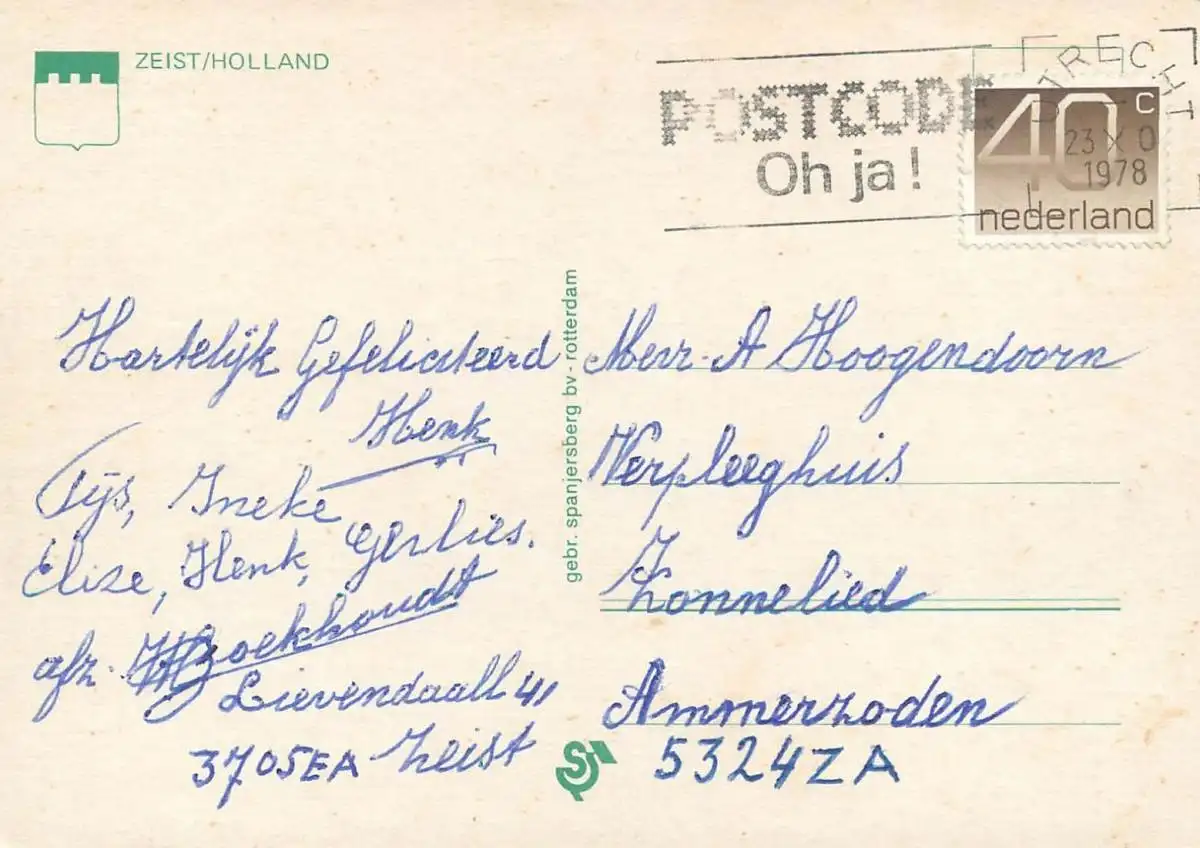 ZEIST/HOLLAND
POSTCODE
Oh ja!
UTRECHT
23 X 0
1978
40 c
nederland
Hartelijk Gefeliciteerd
Henk
Tijs, Ineke
Elize, Henk, Gerlies.
afz. Boekhoudt
Lievendaall 41
3705EA Zeist
gebr. spanjersberg bv - rotterdam
Mevr. A Hoogendoorn
Verpleeghuis
Zonnelied
Ammerzoden
5324ZA